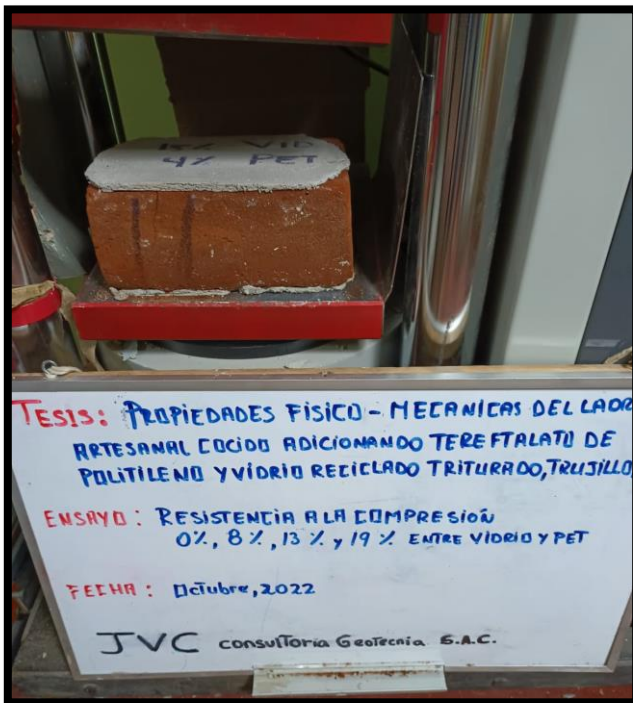 15% VID
4% PET
TESIS: PROPIEDADES FÍSICO - MECANICAS DEL LADR
ARTESANAL COCIDO ADICIONANDO TEREFTALATO DE
POLITILENO Y VIDRIO RECICLADO TRITURADO, TRUJILLO,
ENSAYO: RESISTENCIA A LA COMPRESIÓN
0%, 8%, 13% y 19% ENTRE VIDRIO Y PET
FECHA: OCTUBRE, 2022
JVC CONSULTORIA GEOTECNIA S.A.C.